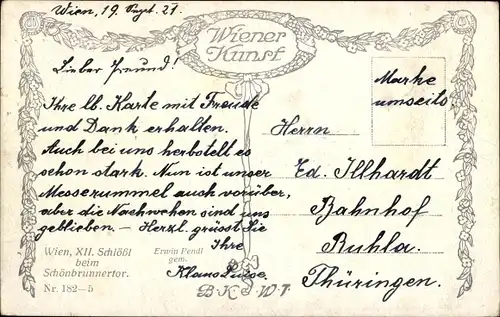 Wien, 19. Sept. 21.
Wiener
Kunst
Lieber Freund!
Ihre lb. Karte mit Freude
und Dank erhalten.
Auch bei uns herbstelt es
schon stark. Nun ist unser
Messerummel auch vorüber,
aber die Nachwehen sind uns
geblieben. – Herzl. grüsst Sie
Ihre
Klara Luise.
Marke
umseits.
Herrn
Ed. Illhardt
Bahnhof
Ruhla.
Thüringen.
Wien, XII. Schlößl
beim
Schönbrunnertor.
Nr. 182—5
Erwin Pendl
gem.
B.K.W.I.